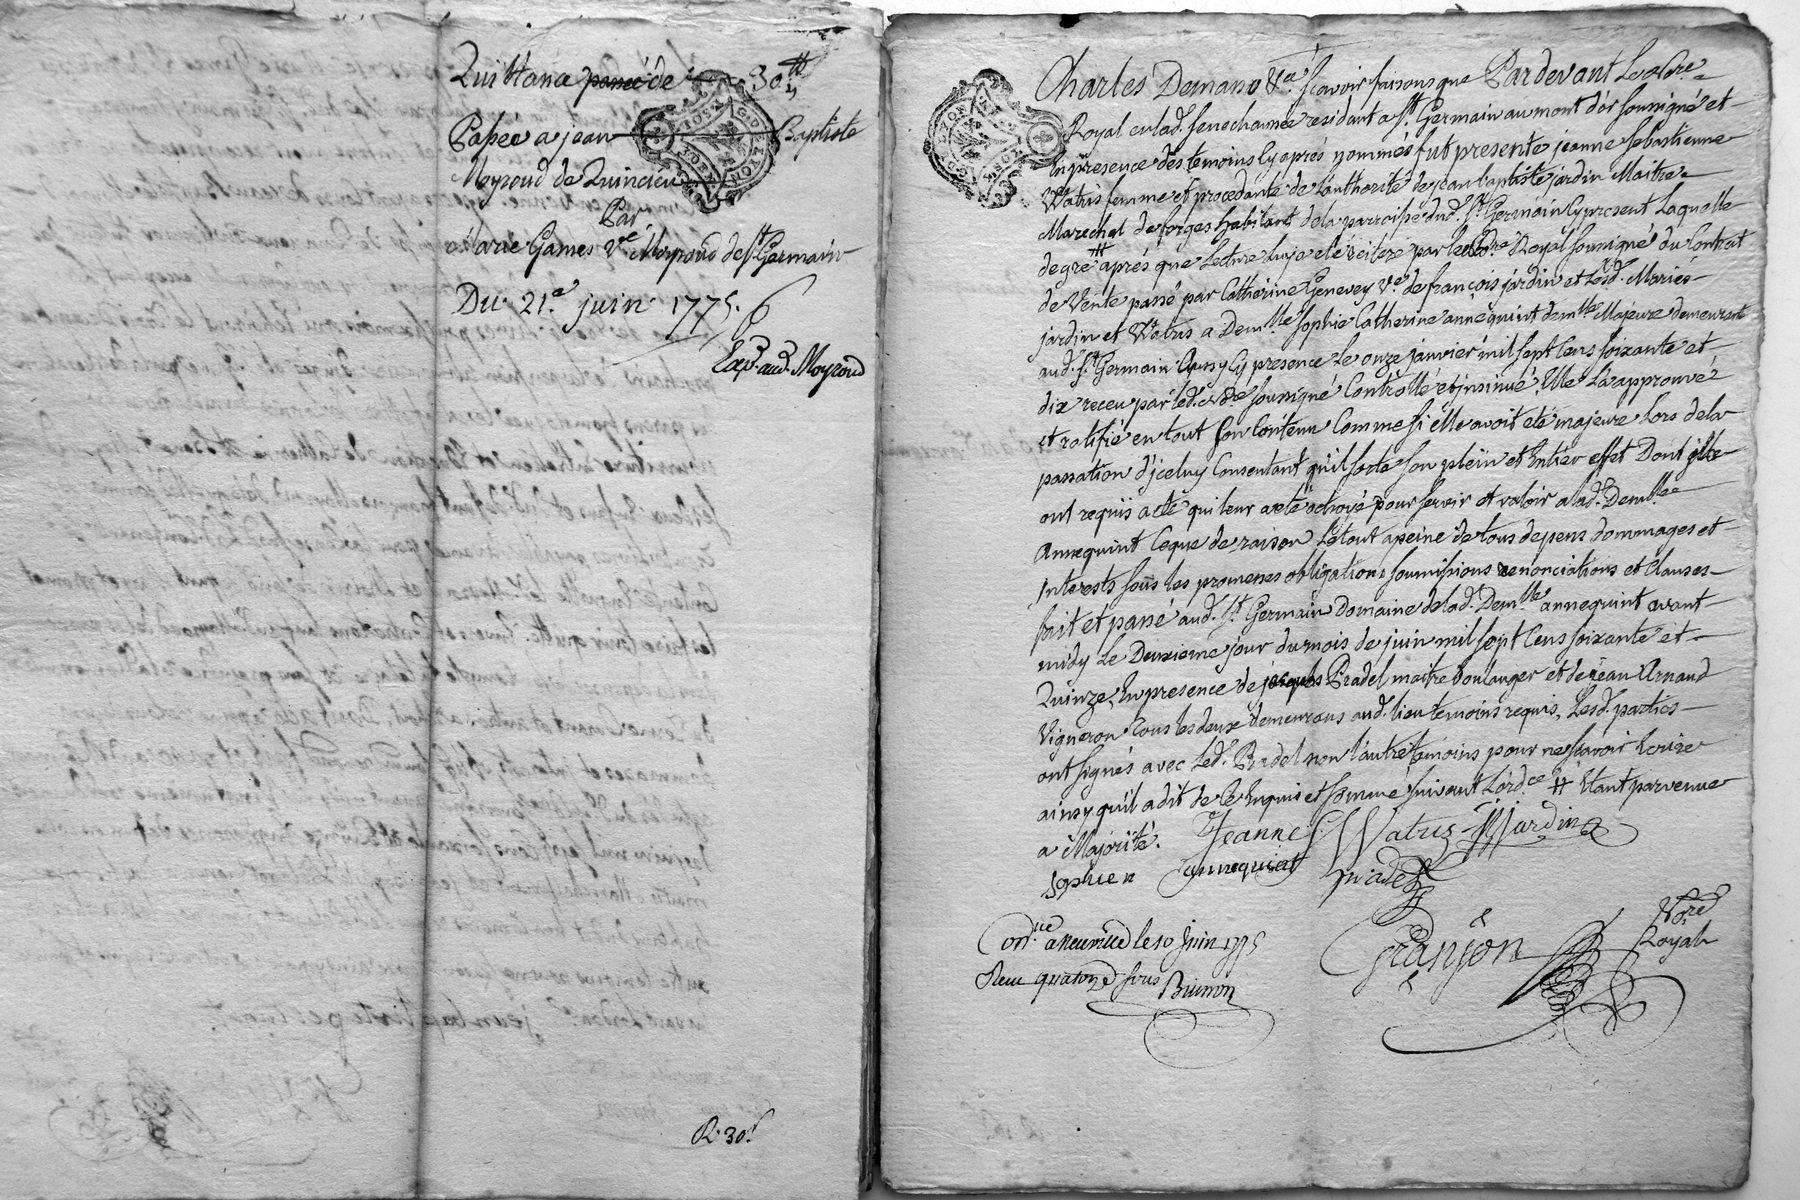 Quittance passée de 30 ₶
Passée a jean Baptiste
Moyroud de Quincieu
Par
Marie Games Ve Moyroud de St Germain
Du 21e juin 1775.
Exp. aud. Moyroud
R. 30 s
Charles Demano &a Scavoir faisons que Pardevant Le Nore
Royal en lad. senechaussée residant a St Germain au mont d'or soussigné et
En presence des temoins Cy aprés nommés fut presente jeanne Sebastienne
Watris femme et procedante de L'authorité de jean Baptiste jardin Maitre
Marechal de forges habitant de la parroisse dud. St Germain Cy present Laquelle
de gré # aprés que Lecture Luy a eté reiteré par le Nore Royal soussigné du Contrat
de Vente passé par Catherine Genevey Ve de françois jardin et Lesd. Mariés
jardin et Watris a Demlle Sophie Catherine annequint demlle Majeure demeurant
aud. St Germain Aussy Cy presence Le onze janvier mil sept Cens soixante et
dix receu par led. Nore soussigné Controllé et insinué, Elle L'a approuvé
et ratifié en tout son Contenu Comme si elle avoit eté majeure Lors de la
passation d'jceluy Consentant qu'il sorte son plein et Entier effet Dont elle
ont requis acte qui leur a eté octroyé pour servir et valoir a lad. Demlle
Annequint Ce que de raison Le tout a peine de tous depens dommages et
Interests sous les promesses obligations soumissions renonciations et Clauses
fait et passé aud. St Germain Domaine de lad. Demlle annequint avant
midy Le Deuxieme jour du mois de juin mil sept Cens soixante et
Quinze, En presence de jacques Pradel maitre boulanger et de jean Arnaud
Vigneron Tous les deux demeurans aud. lieu temoins requis, Lesd. parties
ont signés avec Led. Pradel non l'autre temoins pour ne sçavoir Ecrire
ainsy qu'il a dit de ce Enquis et sommé suivant L'ordce # Etant parvenue
a Majorité. Jeanne S. Watris JJardin
Sophie Annequint Pradel
Conlle a Neuville le 10 juin 1775
Reçu quatorze sous
Brunon
Granjon
Nore
Royal